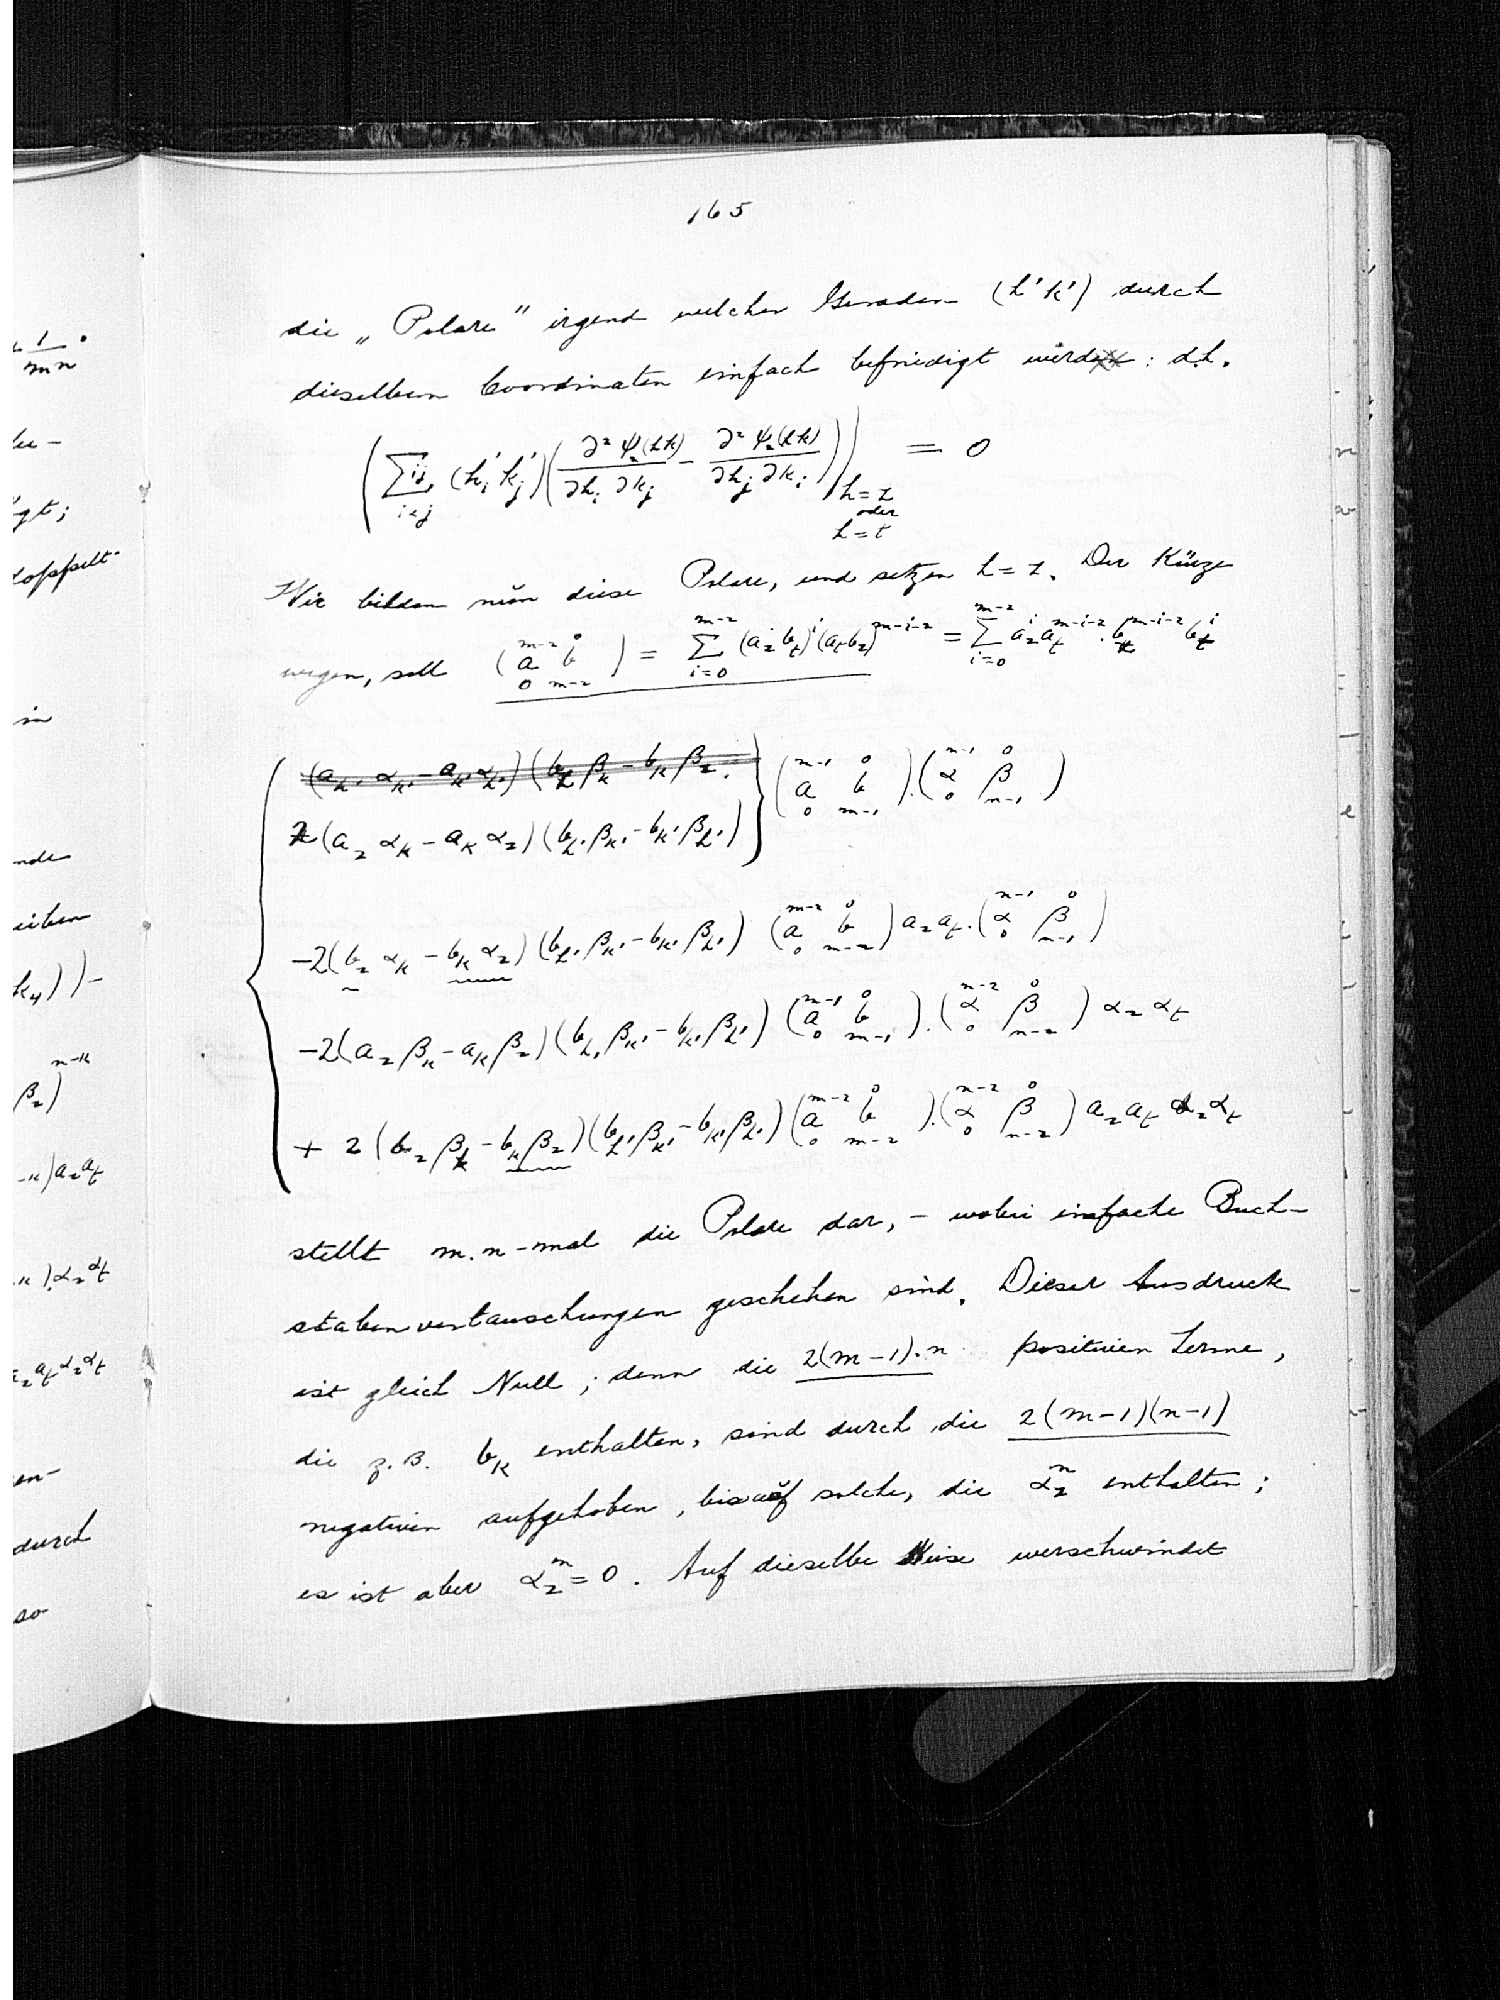 165
die „Polare" irgend welcher Geraden (h'k') durch
dieselben Coordinaten einfach befriedigt würde : d.h.
( Σ_{i<j}^{ij} (h'_i k'_j) ( ∂²ψ_2(hk)/∂h_i ∂k_j − ∂²ψ_2(hk)/∂h_j ∂k_i ) )_{h=z oder h=t} = 0
Wir bilden nun diese Polare, und setzen h=z. Der Kürze
wegen, soll (a^{m-2}_0 b^0_{m-2}) = Σ_{i=0}^{m-2} (a_z b_t)^i (a_t b_z)^{m-i-2} = Σ_{i=0}^{m-2} a_z^i a_t^{m-i-2} . b_z^{m-i-2} b_t^i
(a_{h'} α_{k'} − a_{k'} α_{h'}) (b_z β_k − b_k β_z .
2(a_z α_k − a_k α_z) (b_{h'} β_{k'} − b_{k'} β_{h'}) } (a^{m-1}_0 b^0_{m-1}) . (α^{n-1}_0 β^0_{n-1})
−2(b_z α_k − b_k α_z) (b_{h'} β_{k'} − b_{k'} β_{h'}) (a^{m-2}_0 b^0_{m-2}) a_z a_t . (α^{n-1}_0 β^0_{n-1})
−2(a_z β_k − a_k β_z) (b_{h'} β_{k'} − b_{k'} β_{h'}) (a^{m-1}_0 b^0_{m-1}) . (α^{n-2}_0 β^0_{n-2}) α_z α_t
+ 2 (b_z β_k − b_k β_z) (b_{h'} β_{k'} − b_{k'} β_{h'}) (a^{m-2}_0 b^0_{m-2}) . (α^{n-2}_0 β^0_{n-2}) a_z a_t α_z α_t
stellt m.n-mal die Polare dar, – wobei einfache Buch-
stabenvertauschungen geschehen sind. Dieser Ausdruck
ist gleich Null ; denn die 2(m−1).n positiven Terme,
die z.B. b_k enthalten, sind durch die 2(m−1)(n−1)
negativen aufgehoben, bis auf solche, die α_z^n enthalten ;
es ist aber α_z^n = 0 . Auf dieselbe Weise verschwindet